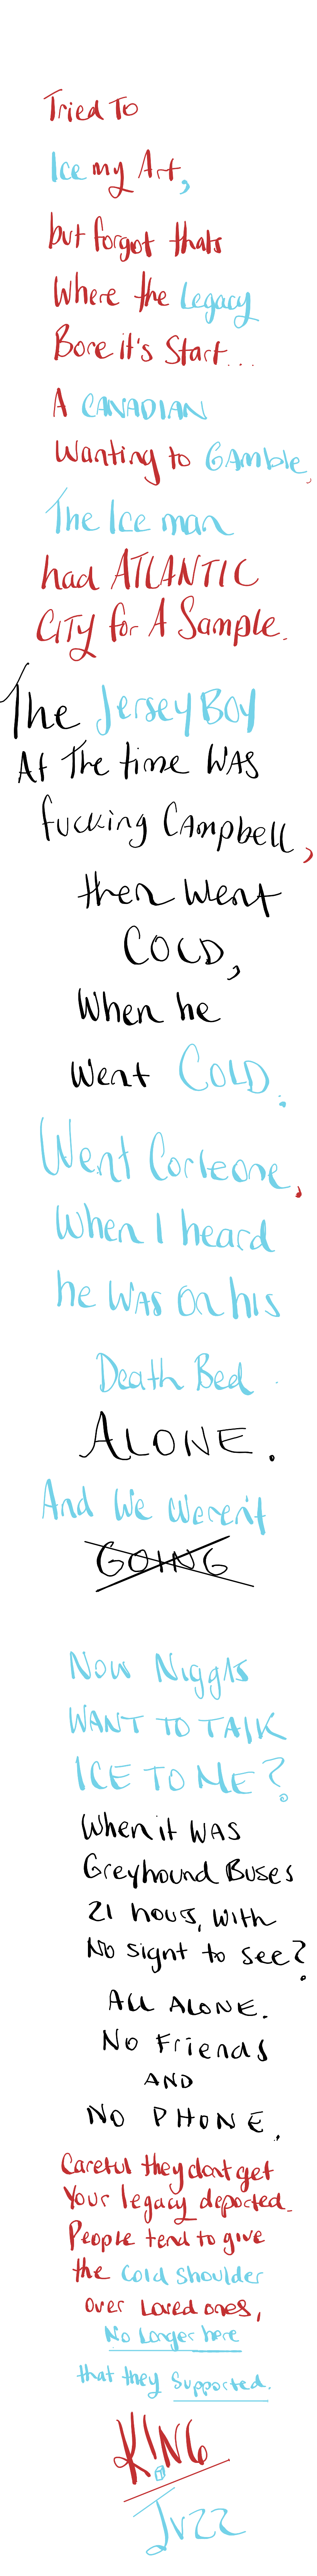 Tried To
Ice my Art,
but forgot thats
Where the Legacy
Bore it's Start...
A CANADIAN
Wanting to GAMble,
The Ice man
had ATLANTIC
CITY for A Sample.
The Jersey BOY
At The time WAS
fucking CAmpbell,
then Went
COLD,
When he
Went COLD.
Went Corleone,
When I heard
he WAS On his
Death Bed
ALONE.
And We Weren't
GOING
Now NiggAs
WANT TO TAlK
ICE TO ME?
When it WAS
Greyhound Buses
21 hours, With
No signt to see?
All ALONE.
No Friends
AND
NO PHONE.
Careful they dont get
Your legacy deported.
People tend to give
the Cold Shoulder
over Loved ones,
No Longer here
that they Supported.
K!NG
Jvzz